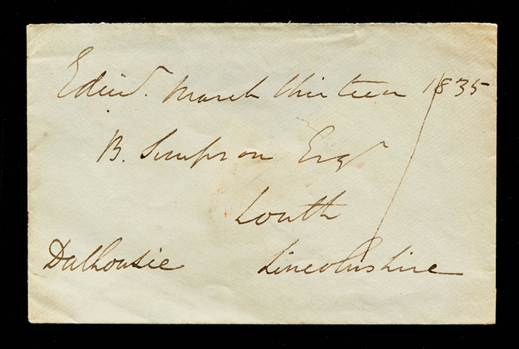 Edinr. March thirteen 1835
B. Simpson Esqr
Louth
Dalhousie Lincolnshire